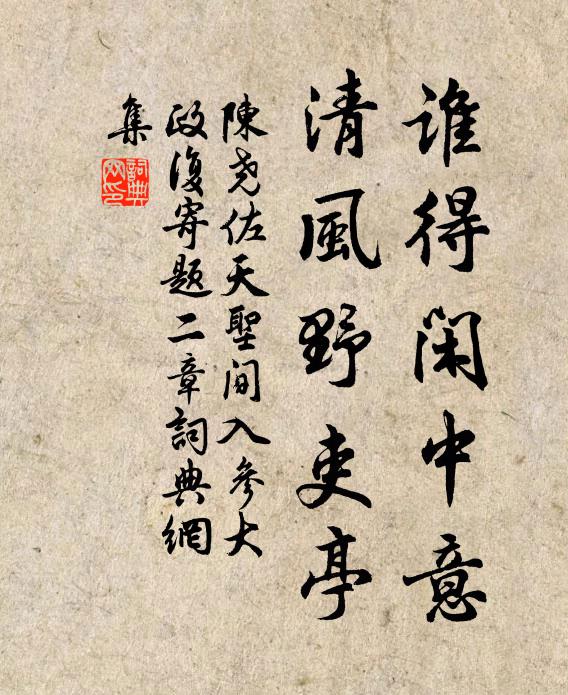 谁得闲中意
清風野吏亭
陳堯佐天聖间入參大
政復寄题二章詞典網
集
詞典網印